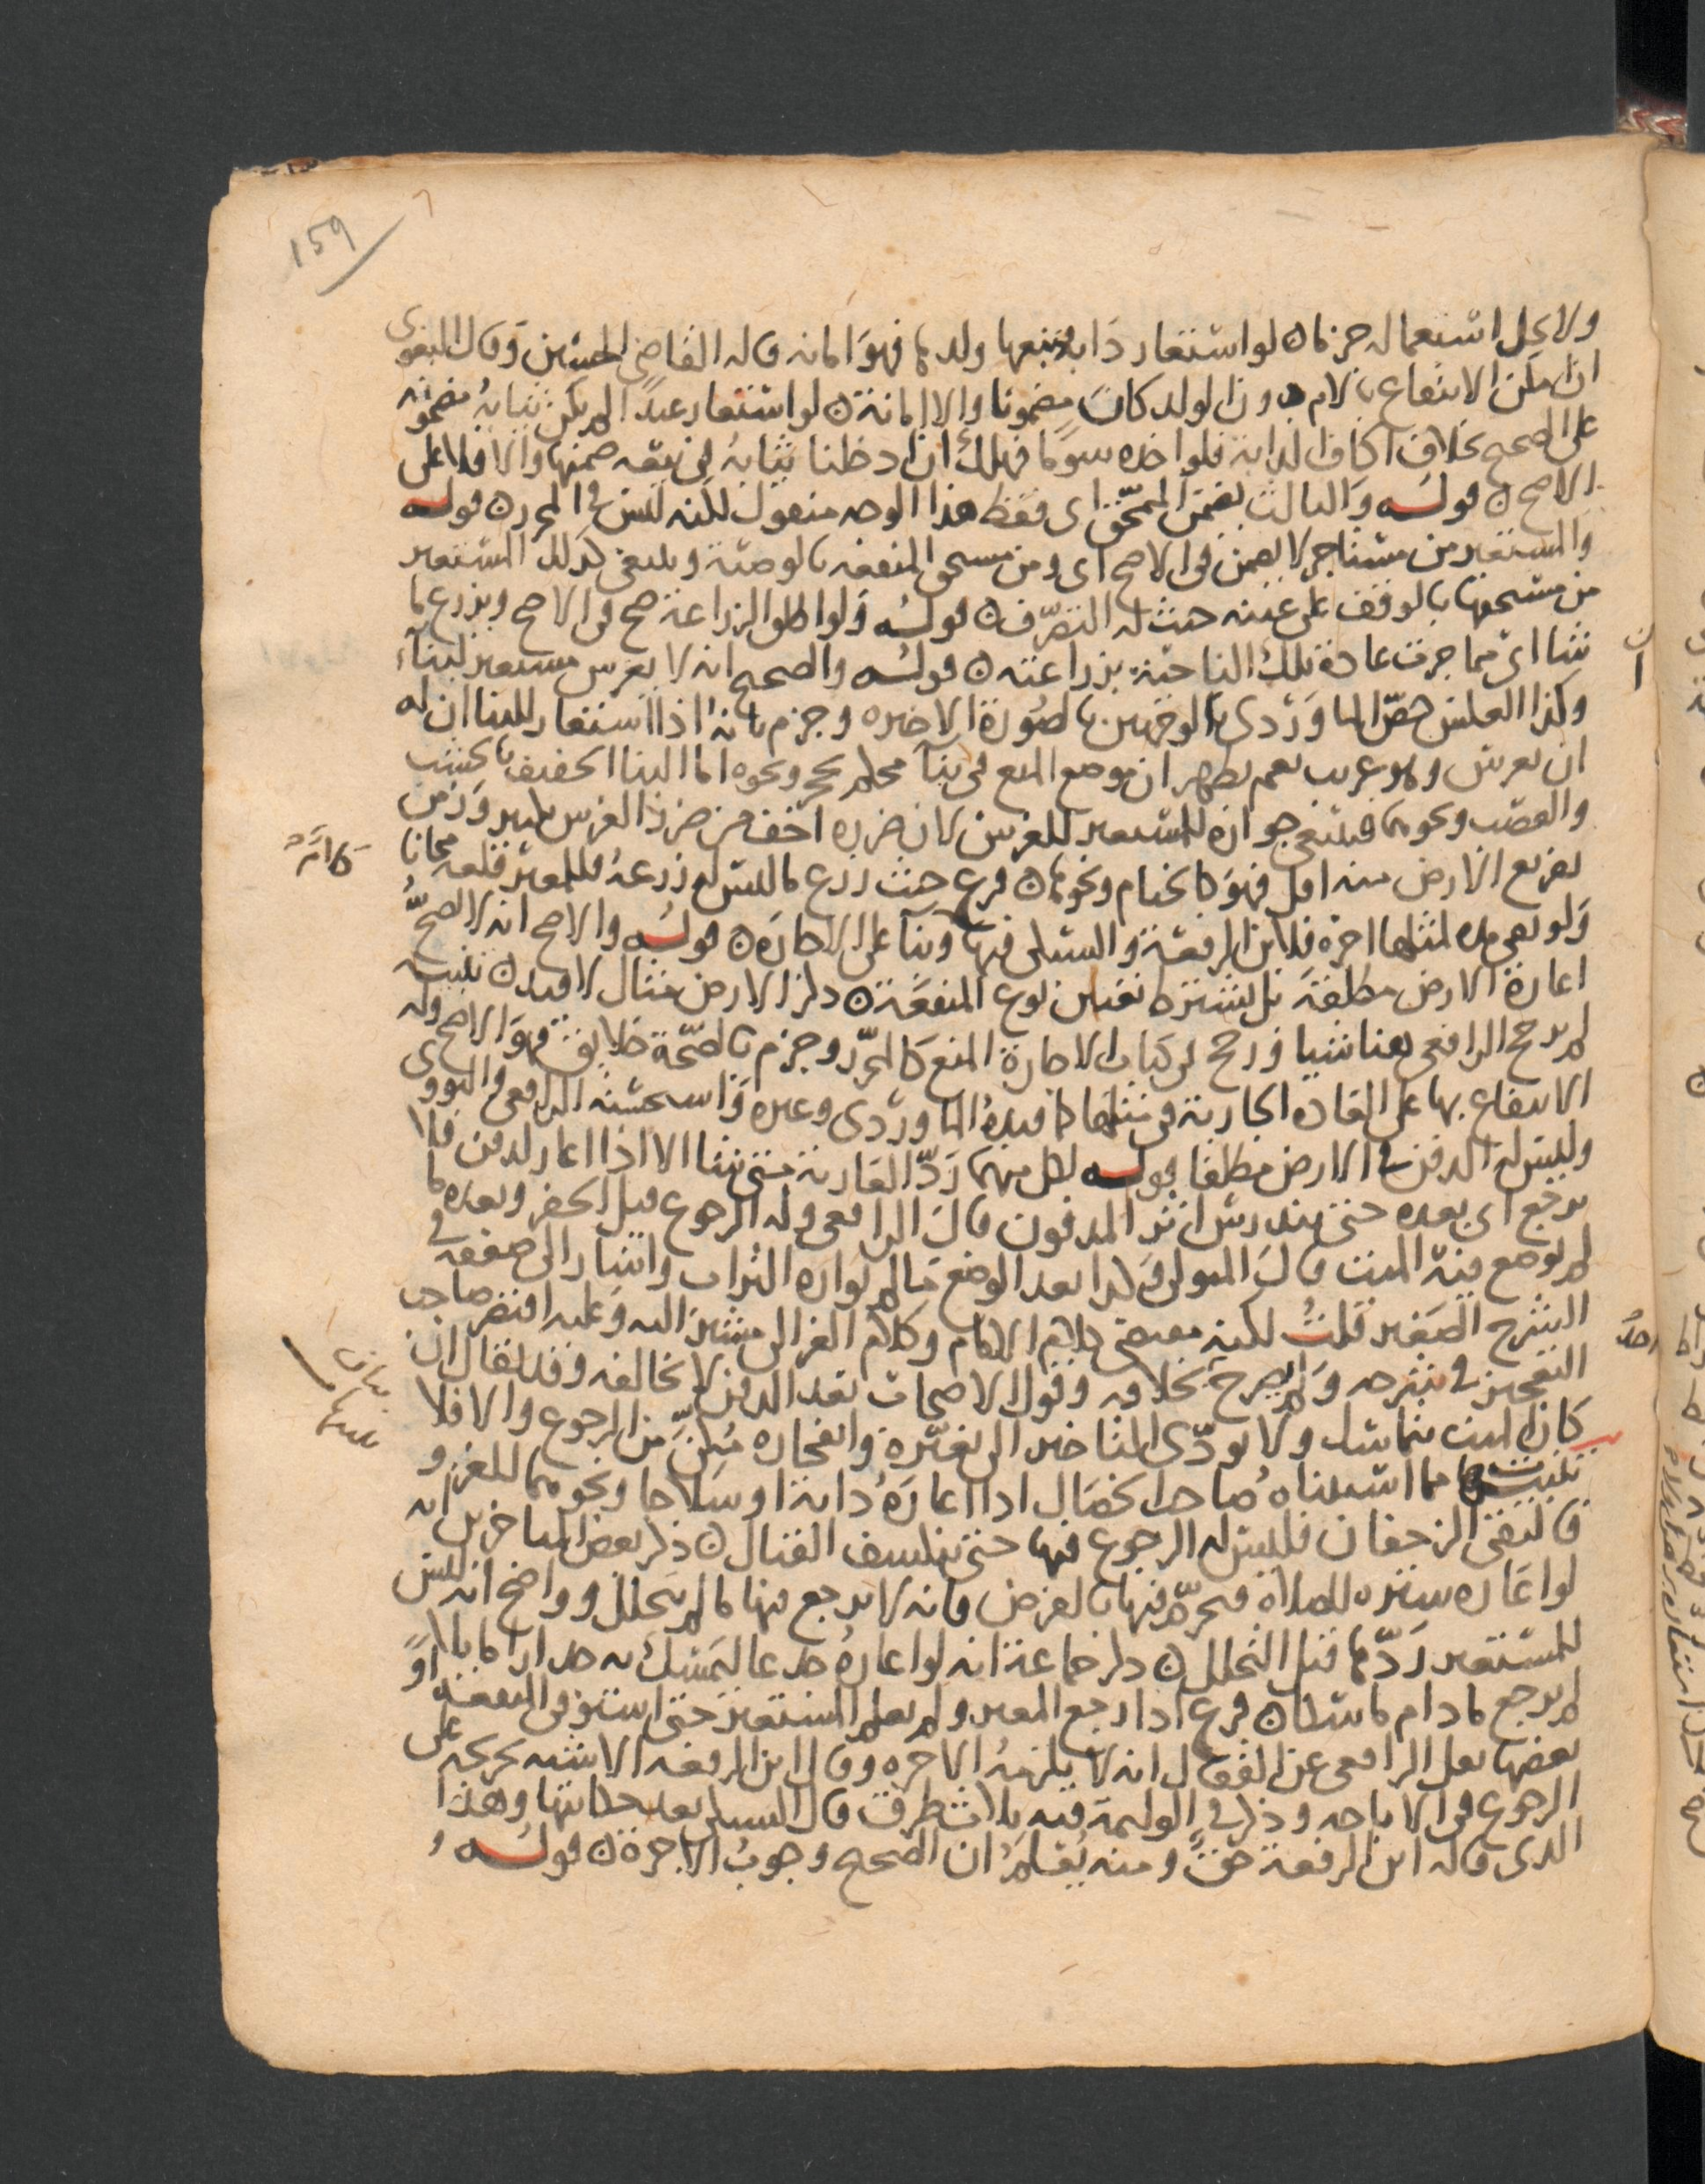 159
ولا يحل استعماله جزما ۞ لو استعار دابة فتبعها ولدها فهو امانه قاله القاضي الحسين وقال البغوي
ان امكن الانتفاع بالام دون الولد كان مضمونا والا امانة ۞ لو استعار عبدا لم يكن ثيابه مضمونه
على الصحيح بخلاف اكاف الدابة فلو اخذه سوما فهلك ان ادخلنا ثيابه في بيعه ضمنها والا فلا على
الاصح ۞ قوله والثالث يضمن المنمحق اي فقط هذا الوجه منقول لكنه ليس في المحرر ۞ قوله
والمستعير من مستاجر لا يضمن في الاصح اي ومن مستحق المنفعه بالوصية وينبغي كذلك المستعير
من مستحقها بالوقف على عينه حيث له التصرف ۞ قوله ولو اطلق الزراعة صح في الاصح ويزرع ما
شا اي مما جرت عادة تلك الناحية بزراعته ۞ قوله والصحيح انه لا يغرس مستعير لبناء
وكذا العكس خص الماوردي الوجهين بالصورة الاخيره وجزم بانه اذا استعار للبنا ان له
ان يغرس وهو غريب نعم يظهر ان موضع المنع في بناء محكم بحجر ونحوه اما البنا الخفيف بالخشب
والقصب ونحوهما فينبغي جوازه للمستعير للغرس لان ضرره اخف من ضرر الغرس بكثير وزمن
تفريغ الارض منه اقل فهو كالخيام ونحوها ۞ فرع حيث زرع ما ليس له زرعه فللمعير قلعه مجانا
كانه
ولو بقي مده لمثلها اجرة فلابن الرفعة والسبكي فيها وبناء على الاجارة ۞ قوله والاصح انه لا تصح
اعارة الارض مطلقة بل يشترط تعيين نوع المنفعة ۞ ذكر الارض مثال لا قيد ۞ تنبيه
لم يرجح الرافعي هنا شيا ورجح في كتاب الاجارة المنع كالمحرر وجزم بالصحة خلايق فهو الاصح وله
الانتفاع بها على العادة الجارية في مثلها كما قيده الماوردي وغيره واستحسنه الرافعي والنووي
وليس له الدفن في الارض مطلقا قوله لكل منهما رد العارية متى شا الا اذا اعار لدفن فلا
يرجع اي بعده حتى يندرس اثر المدفون قال الرافعي وله الرجوع قبل الحفر وبعده ما
لم يوضع فيه الميت قال المتولي وكذا بعد الوضع ما لم يواره التراب واشار الى ضعفه في
الشرح الصغير قلت لكنه مقتضى كلام الامام وكلام الغزالي مشير اليه وعليه اقتصر صاحب
التعجيز في شرحه ولم يصرح بخلافه وقول الاصحاب بعد الدفن لا يخالفه وقد يقال ان
كان الميت يتماسك ولا يودي المتاخير الى تغيره وانفجاره مكن من الرجوع والا فلا
تنبيهات مما استثناه صاحب الخصال اذا اعاره دابة او سلاحا ونحوهما للغزو
فالتقى الزحفان فليس له الرجوع فيها حتى ينكشف القتال ۞ ذكر بعض المتاخرين انه
لو اعاره ستره للصلاة فتحرم فيها بالفرض فانه لا يرجع فيها ما لم يتحلل وواضح انه ليس
للمستعير ردها قبل التحلل ۞ ذكر جماعة انه لو اعاره جذعا ليمسك به جدارا مايلا
لم يرجع ما دام ماسكا ۞ فرع اذا رجع المعير ولم يعلم المستعير حتى استوفى المنفعة او
بعضها نقل الرافعي عن القفال انه لا يلزمه الاجره وقال ابن الرفعه الاشبه تخريجه على
الرجوع في الاباحه وذكر في الوليمة فيه ثلاث طرق قال السبكي بعد حكايتها وهذا
الذي قاله ابن الرفعة حق ومنه يعلم ان الصحيح وجوب الاجرة ۞ قوله و